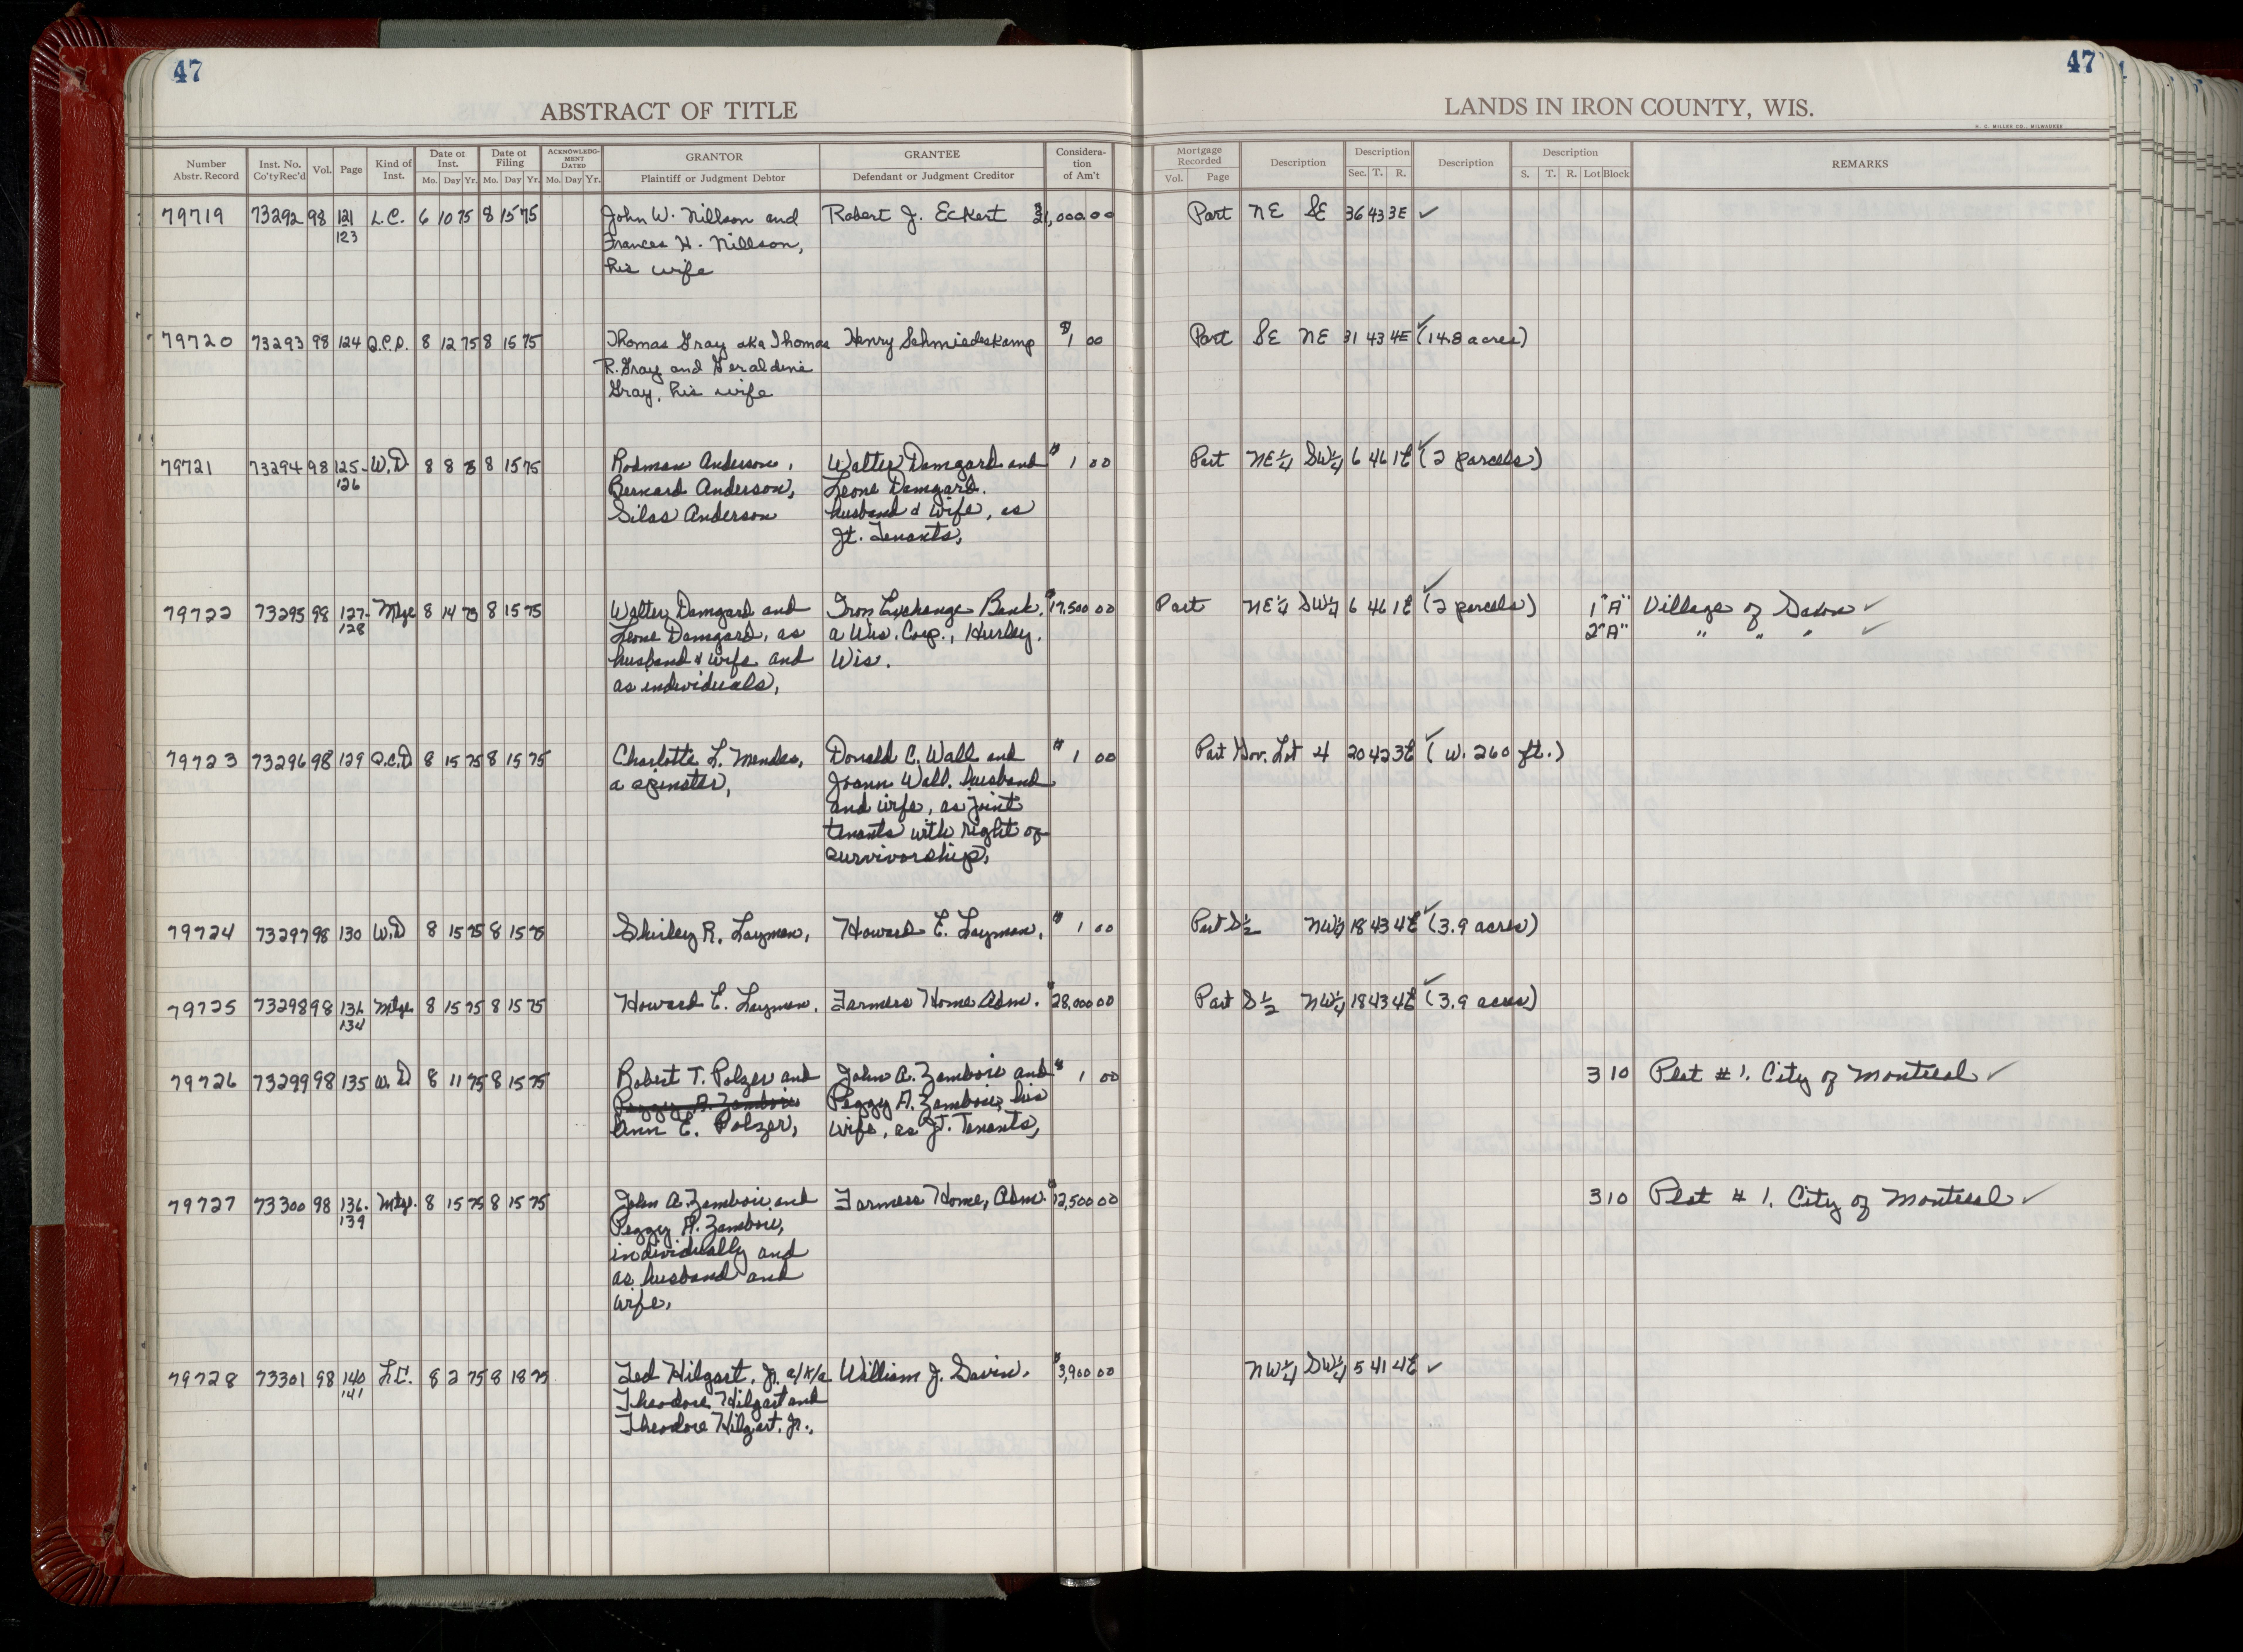 47
47
ABSTRACT OF TITLE
LANDS IN IRON COUNTY, WIS.
H. C. MILLER CO., MILWAUKEE
Number Abstr. Record Inst. No. Co'ty Rec'd Vol. Page Kind of Inst. Date of Inst. Mo. Day Yr. Date of Filing Mo. Day Yr. ACKNOWLEDGMENT DATED Mo. Day Yr. GRANTOR Plaintiff or Judgment Debtor GRANTEE Defendant or Judgment Creditor Consideration of Am't Mortgage Recorded Vol. Page Description Description Sec. T. R. Description Description S. T. R. Lot Block REMARKS
79719 73292 98 121 L.C. 6 10 75 8 15 75 John W. Nillson and Robert J. Eckert 00 Part NE SE 36 43 3E ✓
123 Frances H. Nillson,
his wife
79720 73293 98 124 Q.C.D. 8 12 75 8 15 75 Thomas Gray aka Thomas Henry Schmiedeskamp $1 00 Part SE NE 31 43 4E ✓ (14.8 acres)
R. Gray and Geraldine
Gray, his wife
79721 73294 98 125- W.D 8 8 75 8 15 75 Rodman Anderson, Walter Damgard and $ 1 00 Part NE¼ SW¼ 6 46 1E ✓ (2 parcels)
126 Bernard Anderson, Leone Damgard,
Silas Anderson husband & wife, as
Jt. Tenants,
79722 73295 98 127- Mtge 8 14 75 8 15 75 Walter Damgard and Iron Exchange Bank, $17,500 00 Part NE¼ SW¼ 6 46 1E ✓ (2 parcels) 1 "A" Village of Saxon ✓
128 Leone Damgard, as a Wis. Corp., Hurley, 2 "A" " " " ✓
husband & wife and Wis.
as individuals,
79723 73296 98 129 Q.C.D 8 15 75 8 15 75 Charlotte L. Mendes, Donald C. Wall and $ 1 00 Part Gov. Lot 4 20 42 3E ✓ (W. 260 ft.)
a spinster, Joann Wall, husband
and wife, as joint
tenants with right of
survivorship,
79724 73297 98 130 W.D 8 15 75 8 15 75 Shirley R. Layman, Howard E. Layman, $ 1 00 Part S½ NW¼ 18 43 4E ✓ (3.9 acres)
79725 73298 98 131- Mtge 8 15 75 8 15 75 Howard E. Layman, Farmers Home Adm. $28,000 00 Part S½ NW¼ 18 43 4E ✓ (3.9 acres)
134
79726 73299 98 135 W.D 8 11 75 8 15 75 Robert T. Polzer and John A. Zamboic and $ 1 00 3 10 Plat #1, City of Montreal ✓
Peggy A. Zamboic Peggy A. Zamboic, his
Ann E. Polzer, wife, as Jt. Tenants,
79727 73300 98 136- Mtge. 8 15 75 8 15 75 John A. Zamboic and Farmers Home, Adm. $12,500 00 3 10 Plat #1, City of Montreal ✓
139 Peggy A. Zamboic,
individually and
as husband and
wife,
79728 73301 98 140 L.C. 8 2 75 8 18 75 Ted Hilgart, Jr. a/k/a William J. $3,900 00 NW¼ SW¼ 5 41 4E ✓
141 Theodore Hilgart and
Theodore Hilgart, Jr.,